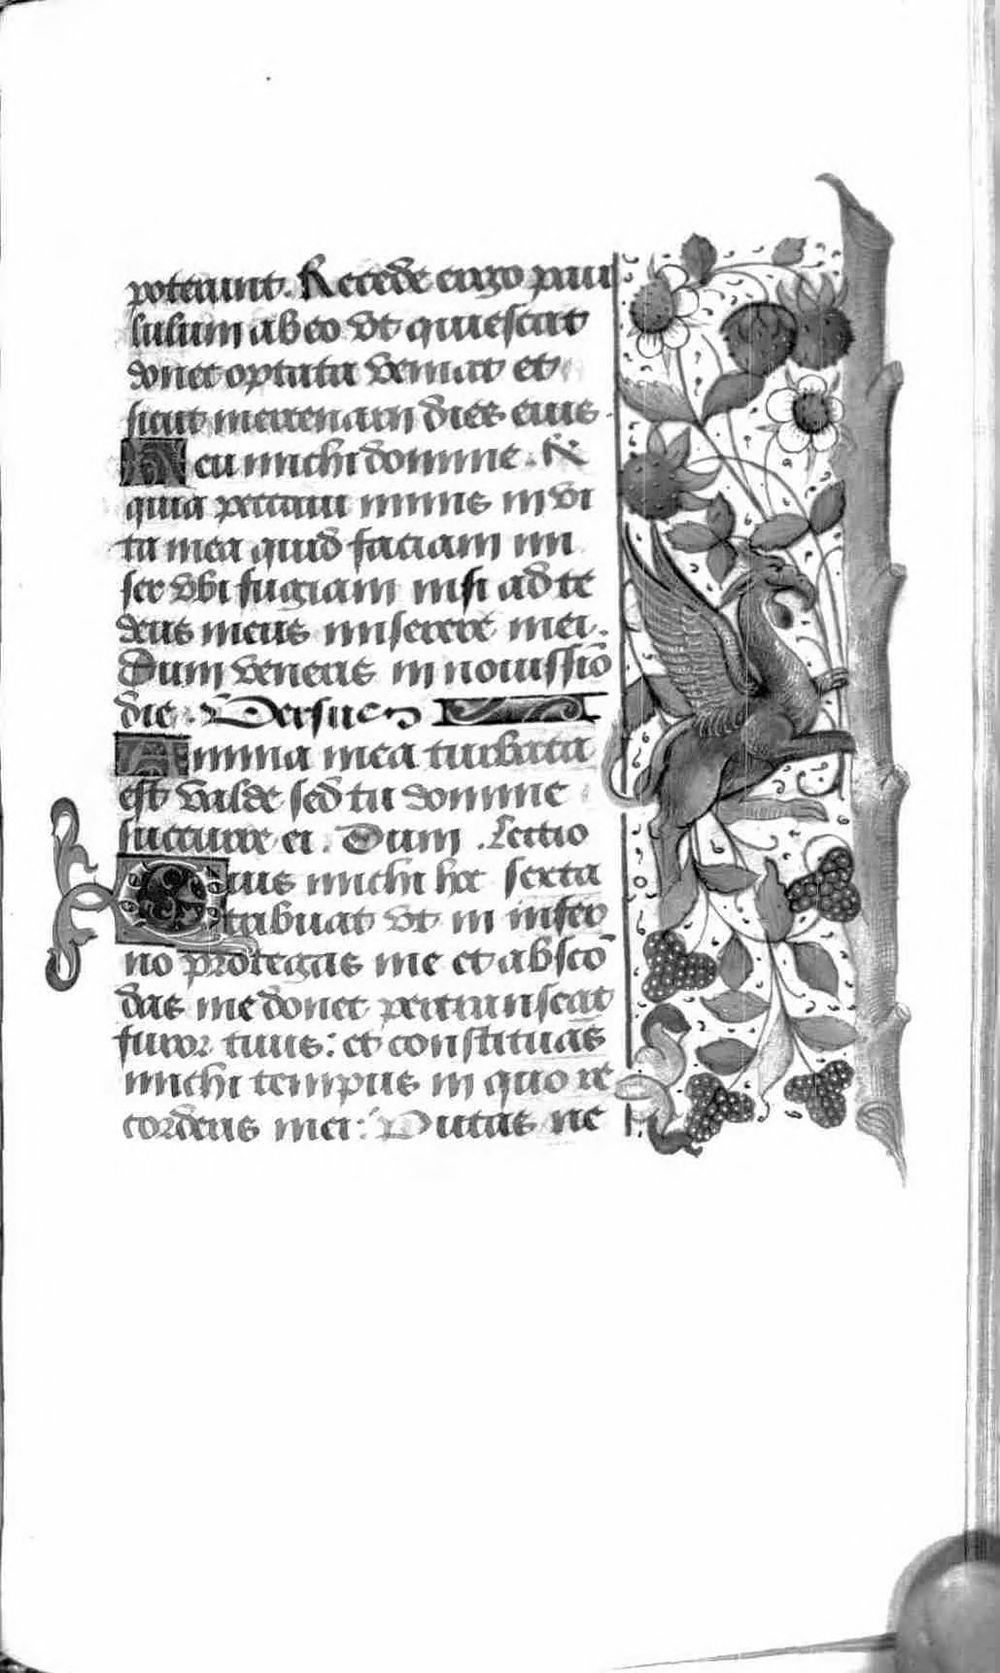 poterunt. Recede ergo pau
lulum ab eo vt quiescat
donec optata veniat et
sicut mercenarii dies eius.
Heu michi domine. R
quia peccaui nimis in vi
ta mea quid faciam mi
ser vbi fugiam nisi ad te
deus meus miserere mei.
Dum veneris in nouissiō
die. Versus
Anima mea turbata
est valde sed tu domine
succurre ei. Dum. Lectio
Quis michi hoc sexta
tribuat vt in infer
no protegas me et abscō
das me donec pertranseat
furor tuus: et constituas
michi tempus in quo re
corderis mei: Putas ne